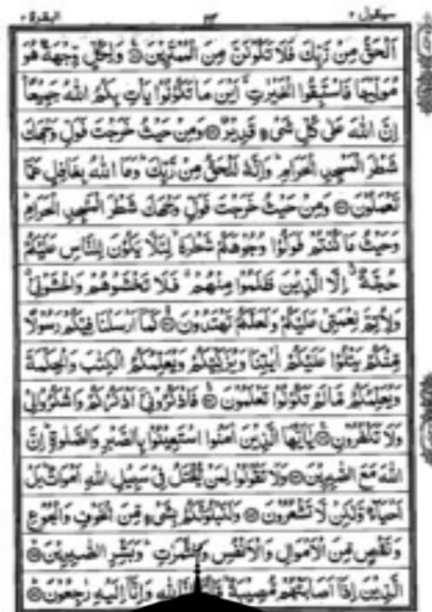 سيقول ٢ ٢٣ البقرة ٢
اَلْحَقُّ مِنْ رَّبِّكَ فَلَا تَكُوْنَنَّ مِنَ الْمُمْتَرِيْنَ ۝ وَلِكُلٍّ وِّجْهَةٌ هُوَ
مُوَلِّيْهَا فَاسْتَبِقُوا الْخَيْرٰتِ ؕ اَيْنَ مَا تَكُوْنُوْا يَاْتِ بِكُمُ اللّٰهُ جَمِيْعًا ؕ
اِنَّ اللّٰهَ عَلٰى كُلِّ شَىْءٍ قَدِيْرٌ ۝ وَمِنْ حَيْثُ خَرَجْتَ فَوَلِّ وَجْهَكَ
شَطْرَ الْمَسْجِدِ الْحَرَامِ ؕ وَاِنَّهٗ لَلْحَقُّ مِنْ رَّبِّكَ ؕ وَمَا اللّٰهُ بِغَافِلٍ عَمَّا
تَعْمَلُوْنَ ۝ وَمِنْ حَيْثُ خَرَجْتَ فَوَلِّ وَجْهَكَ شَطْرَ الْمَسْجِدِ الْحَرَامِ ؕ
وَحَيْثُ مَا كُنْتُمْ فَوَلُّوْا وُجُوْهَكُمْ شَطْرَهٗ ۙ لِئَلَّا يَكُوْنَ لِلنَّاسِ عَلَيْكُمْ
حُجَّةٌ ۙ اِلَّا الَّذِيْنَ ظَلَمُوْا مِنْهُمْ ۗ فَلَا تَخْشَوْهُمْ وَاخْشَوْنِىْ ۗ
وَلِاُتِمَّ نِعْمَتِىْ عَلَيْكُمْ وَلَعَلَّكُمْ تَهْتَدُوْنَ ۝ كَمَآ اَرْسَلْنَا فِيْكُمْ رَسُوْلًا
مِّنْكُمْ يَتْلُوْا عَلَيْكُمْ اٰيٰتِنَا وَيُزَكِّيْكُمْ وَيُعَلِّمُكُمُ الْكِتٰبَ وَالْحِكْمَةَ
وَيُعَلِّمُكُمْ مَّا لَمْ تَكُوْنُوْا تَعْلَمُوْنَ ۝ فَاذْكُرُوْنِىْٓ اَذْكُرْكُمْ وَاشْكُرُوْا لِىْ
وَلَا تَكْفُرُوْنِ ۝ يٰٓاَيُّهَا الَّذِيْنَ اٰمَنُوا اسْتَعِيْنُوْا بِالصَّبْرِ وَالصَّلٰوةِ ؕ اِنَّ
اللّٰهَ مَعَ الصّٰبِرِيْنَ ۝ وَلَا تَقُوْلُوْا لِمَنْ يُّقْتَلُ فِىْ سَبِيْلِ اللّٰهِ اَمْوَاتٌ ؕ بَلْ
اَحْيَآءٌ وَّلٰكِنْ لَّا تَشْعُرُوْنَ ۝ وَلَنَبْلُوَنَّكُمْ بِشَىْءٍ مِّنَ الْخَوْفِ وَالْجُوْعِ
وَنَقْصٍ مِّنَ الْاَمْوَالِ وَالْاَنْفُسِ وَالثَّمَرٰتِ ؕ وَبَشِّرِ الصّٰبِرِيْنَ ۝
الَّذِيْنَ اِذَآ اَصَابَتْهُمْ مُّصِيْبَةٌ ۙ لِلّٰهِ وَاِنَّآ اِلَيْهِ رٰجِعُوْنَ ۝